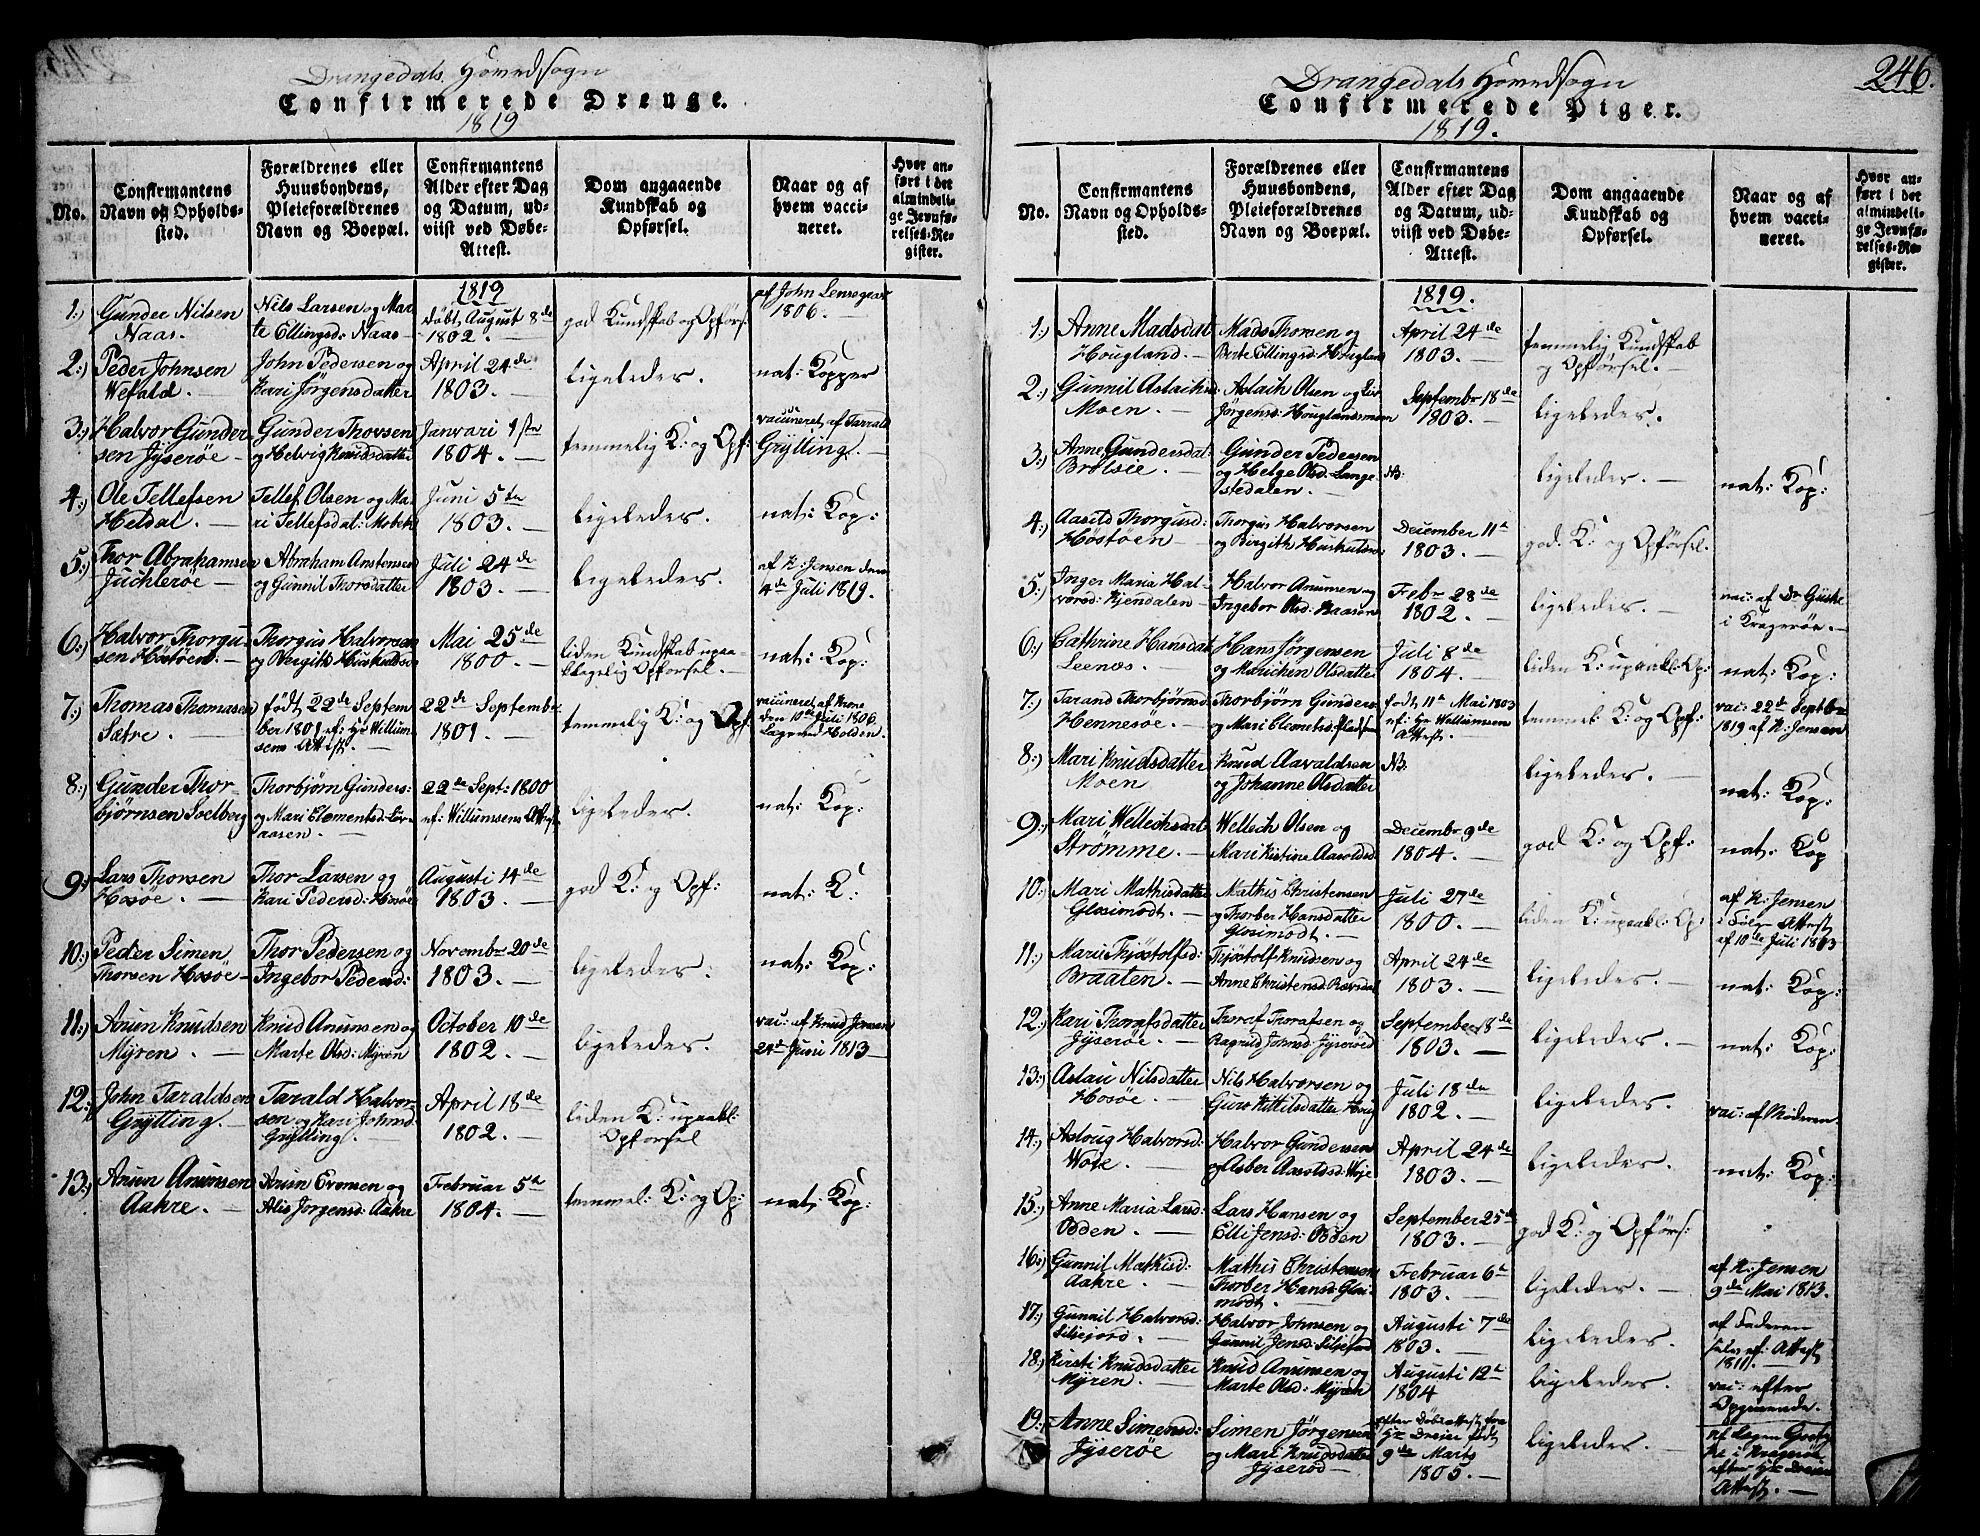 Drangedals Hovedsogn
Confirmerede Drenge.
1819
No.
Confirmantens
Navn og Opholds-
sted.
Forældrenes eller
Huusbondens,
Pleieforældrenes
Navn og Boepæl.
Confirmantens
Alder efter Dag
og Datum, ud-
viist ved Døbe-
Attest.
Dom angaaende
Kundskab og
Opførsel.
Naar og af
hvem vacci-
neret.
Hvor an-
ført i det
almindeli-
ge Jevnfø-
relses-Re-
gister.
1819
1:) Gunder Nilsen
Naas.
Nils Larsen og Mar-
te Ellingsd: Naas
Døbt August 8de
1802.
god Kundskab og Opførs:
af John
1806.
2:) Peder Johnsen
Wefald.
John Pedersen og
Kari Jørgensdatter
April 24de
1803.
ligeledes.
nat: Kopper
3:) Halvor Gunder-
sen Jyserøe
Gunder Thovsen
og Helvig Knudsdatter
Januari 1ste
1804.
temmelig K: og Opf:
vaccineret af Tarrald
Grytting.
4:) Ole Tellefsen
Heldal.
Tellef Olsen og Ma-
ri Tellefsdat:
Juni 5te
1803.
ligeledes.
nat: Kop:
5:) Thor Abrahamsen
Juchlerøe
Abraham Anstensen
og Gunnil Thorsdatter
Juli 24de
1803.
ligeledes.
af K: Jensen den
4de Juli 1819.
6:) Halvor Thorgu-
sen Høstøen.
Thorgus Halvorsen
og Bergith
Mai 25de
1800.
liden Kundskab upaa-
klagelig Opførsel.
nat: Kop:
7:) Thomas Thomasen
Sætre.
født 22de Septem
ber 1801 ef: Hr Willum-
sens Attest
22de Septembr
1801.
temmelig K: og Opf:
vaccineret af Krone
den 10de Juli 1806
Holden.
8:) Gunder Thor-
bjørnsen Soelberg
Thorbjørn Gunders:
og Mari Clementsd:
aasen.
22de Sept: 1800
ef: Willumsens Attest
ligeledes.
nat: Kop:
9:) Lars Thorsen
Hosøe.
Thor Larsen og
Kari Pedersd: Hosøe
Augusti 14de
1803.
god K: og Opf:
nat: K:
10:) Peder Simen
Thorsen Hosøe
Thor Pedersen og
Ingebor Pedersd:
Novembr 20de
1803.
ligeledes:
nat: Kop:
11:) Anun Knudsen
Myren.
Knud Anunsen og
Marte Olsd: Myren
October 10de
1802.
ligeledes.
vac: af Knud Jensen
24de Juni 1813
12:) John Taraldsen
Grytting.
Tarald Halvor-
sen og Kari Johnsd:
Grytting.
April 18de
1802.
liden K: upaakl:
Opførsel
13:) Anun Anunsen
Aahre.
Anun Evensen og
Alis Jørgensd: Aahre
Februar 5te
1804.
temmel: K: og Op:
nat: Kop:
246.
Drangedals Hovedsogn
Confirmerede Piger.
1819.
No.
Confirmantens
Navn og Opholds-
sted.
Forældrenes eller
Huusbondens,
Pleieforældrenes
Navn og Boepæl.
Confirmantens
Alder efter Dag
og Datum, ud-
viist ved Døbe-
Attest.
Dom angaaende
Kundskab og
Opførsel.
Naar og af
hvem vacci-
neret.
Hvor an-
ført i det
almindeli-
ge Jevnfø-
relses-Re-
gister.
1819.
1:) Anne Madsdat
Hougland.
Mads Thorsen og
Berte Ellingsd: Hougland
April 24de
1803.
temmelig Kundskab
og Opførsel.
2:) Gunnil Aslachsd:
Moen.
Aslach Olsen og Liv
Jørgensd: Houglandsmoen
Septembr 18de
1803.
ligeledes.
3:) Anne Gundersdat:
Gunder Pedersen
og Helge Olsd: Lange-
NB:
ligeledes.
nat: Kop:
4:) Aasild Thorgusd:
Høstøen
Thorgus Halvorsen
og Birgith
December 11te
1803.
god K: og Opførsel.
5:) Inger Maria Hal-
vorsd: Kjendalen
Halvor Anunsen og
Ingebor Olsd: Haasen
Febr 28de
1802.
ligeledes.
vac: af Dr
i Kragerøe.
6:) Cathrine Hansdat
Leenæs.
Hans Jørgensen
og Marichen Olsdatter
Juli 8de
1804.
liden K: upaakl: Op:
nat: Kop:
7:) Tarand Thorbjørnsd
Hennesøe.
Thorbjørn Gunders:
og Mari Clemetsd:
født 11te Mai 1803
ef: Hr Willumsens
Attest.
temmel: K: og Opf:
vac: 22de Septbr
1819 af K: Jensen
8:) Mari Knudsdatter
Moen
Knud Aavaldsen
og Johanne Olsdatter
NB:
ligeledes.
nat: Kop:
9:) Mari Wellechsdat
Strømme.
Wellech Olsen og
Mari Kistine Aasoldsd
Decembr 9de
1804.
god K: og Opf:
nat: Kop
10:) Mari Mathisdatter
Glosimodt.
Mathis Christensen
og Thorber Hansdatter
Glosimodt.
Juli 27de
1800.
liden K: upaakl: Op:
af K: Jensen
i følge Attest
af 10de Juli 1813
11:) Mari Thjøstolfsd:
Braaten.
Thjøstolf Knudsen og
Anne Christensd:
April 24de
1803.
ligeledes.
nat: Kop:
12:) Kari Thorafsdatter
Jyserøe.
Thoraf Thorafsen og
Ragnild Johnsd: Jyserøed
September 18de
1803.
ligeledes.
nat: Kop:
13:) Aslau Nilsdatter
Hosøe.
Nils Halvorsen og
Guro Kittilsdatter
Juli 18de
1802.
ligeledes.
vac: af
14:) Asloug Halvorsd:
Woje.
Halvor Gundersen
og Asber Aasoldsd: Woje
April 24de
1803.
ligeledes.
nat: Kop:
15:) Anne Maria Larsd:
Odden.
Lars Hansen og
Elli Jensd: Odden
September 25de
1803.
god K: og Opførs:
16:) Gunnil Mathisd:
Aahre.
Mathis Christensen
Thorber Hansd: Glosi-
modt.
Februar 6te
1803.
ligeledes.
af K: Jensen
9de Mai 1813.
17:) Gunnil Halvorsd:
Siljejord.
Halvor Johnsen og
Gunnil Jensd:
Augusti 7de
1803.
ligeledes.
af Faderen
selv ef: Attest
1811.
18:) Kirsti Knudsdatter
Myren.
Knud Anunsen og
Marte Olsd: Myren
Augusti 12te
1804
ligeledes.
vac: efter
Opgivende.
19:) Anne Simensd:
Jyserøe
Simen Jørgensen
og Mari Knudsdatter
Jyserød
efter Døbeattest fra
Hr Dreier født
9de Marts
1805.
ligeledes.
af Lægen
i Kragerøe
efter Hr Dreiers
Attest.